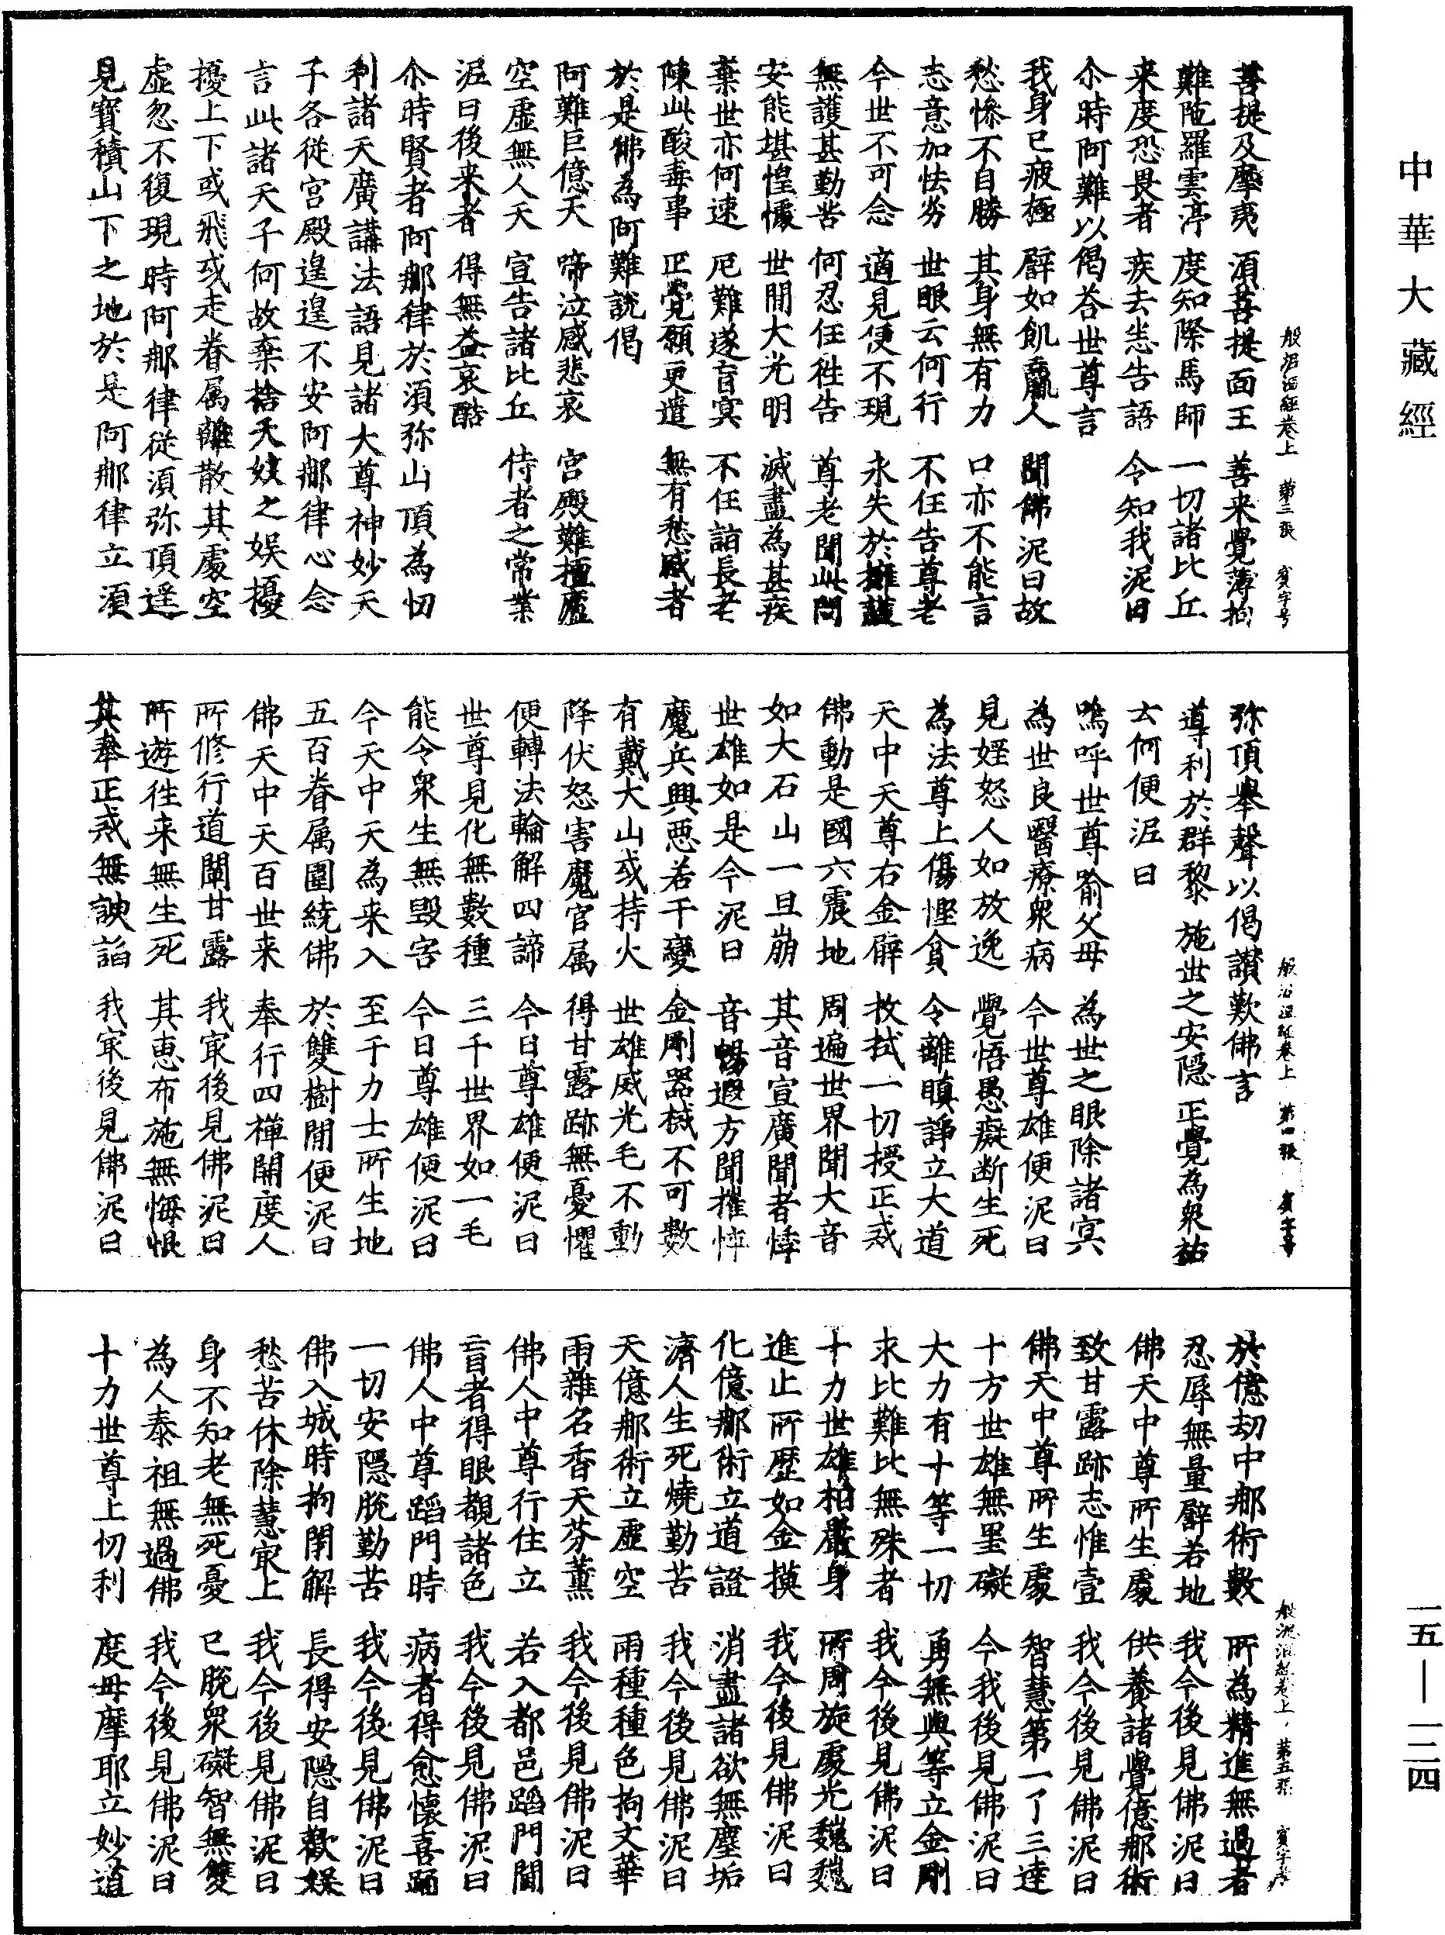 中華大藏經
般泥洹經卷上 第三張 賓字号
菩提及摩夷 須菩提面王 善来覺薄拘
難陁羅雲亭 度知際馬師 一切諸比丘
来度恐畏者 疾去恙告語 令知我泥曰
尒時阿難以偈荅世尊言
我身已疲極 譬如飢羸人 聞佛泥曰故
愁慘不自勝 其身無有力 口亦不能言
志意加怯劣 世眼云何行 不任告尊老
今世不可念 適見便不現 永失於擁護
無護甚勤苦 何忍任徃告 尊老聞此問
安能堪惶懅 世間大光明 滅盡為甚疾
棄世亦何速 厄難遂盲冥 不任詣長老
陳此酸毒事 正覺願更遣 無有愁慼者
於是佛為阿難說偈
阿難巨億天 啼泣感悲哀 宮殿難檀廬
空虛無人天 宣告諸比丘 侍者之常業
泥曰後来者 得無益哀酷
尒時賢者阿那律於須弥山頂為忉
利諸天廣講法語見諸大尊神妙天
子各從宮殿遑遑不安阿那律心念
言此諸天子何故棄捨天妓之娱擾
擾上下或飛或走眷属離散其處空
虛忽不復現時阿那律從須弥頂遥
見寶積山下之地於是阿那律立須
般泥洹經卷上 第四張 賓字号
弥頂舉聲以偈讃歎佛言
導利於群黎 施世之安隱 正覺為衆祐
云何便泥曰
嗚呼世尊喻父母 為世之眼除諸冥
為世良醫療衆病 今世尊雄便泥曰
見婬怒人如放逸 覺悟愚癡断生死
為法尊上傷慳貪 令離瞋諍立大道
天中天尊右金臂 捄拭一切授正戒
佛動是國六震地 周遍世界聞大音
如大石山一旦崩 其音宣廣聞者悸
世雄如是今泥曰 音暢遐方聞摧悴
魔兵興惡若干變 金剛器械不可數
有戴大山或持火 世雄威光毛不動
降伏怒害魔官属 得甘露跡無憂懼
便轉法輪解四諦 今日尊雄便泥曰
世尊見化無數種 三千世界如一毛
能令衆生無毀害 今日尊雄便泥曰
今天中天為来入 至于力士所生地
五百眷属圍繞佛 於雙樹間便泥曰
佛天中天百世来 奉行四禪開度人
所修行道闡甘露 我㝡後見佛泥曰
所遊徃来無生死 其恵布施無悔恨
其奉正戒無諛諂 我㝡後見佛泥曰
般泥洹經卷上 第五張 賓字号
於億劫中那術數 所為精進無過者
忍辱無量譬若地 我今後見佛泥曰
佛天中尊所生處 供養諸覺億那術
致甘露跡志惟壹 我今後見佛泥曰
佛天中尊所生處 智慧第一了三達
十方世雄無罣礙 今我後見佛泥曰
大力有十等一切 勇無與等立金剛
求比難比無殊者 我今後見佛泥曰
十力世雄相嚴身 所周旋處光魏魏
進止所歷如金摸 我今後見佛泥曰
化億那術立道證 消盡諸欲無塵垢
濟人生死燒勤苦 我今後見佛泥曰
天億那術立虛空 雨種種色拘文華
雨雜名香天芬薰 我今後見佛泥曰
佛人中尊行住立 若入都邑蹈門閫
盲者得眼覩諸色 我今後見佛泥曰
佛人中尊蹈門時 病者得愈懷喜踊
一切安隱脫勤苦 我今後見佛泥曰
佛入城時拘閇解 長得安隱自歡娱
愁苦休除慧㝡上 我今後見佛泥曰
身不知老無死憂 已脫衆礙智無雙
為人泰祖無過佛 我今後見佛泥曰
十力世尊上忉利 度母摩耶立妙道
一五—一二四